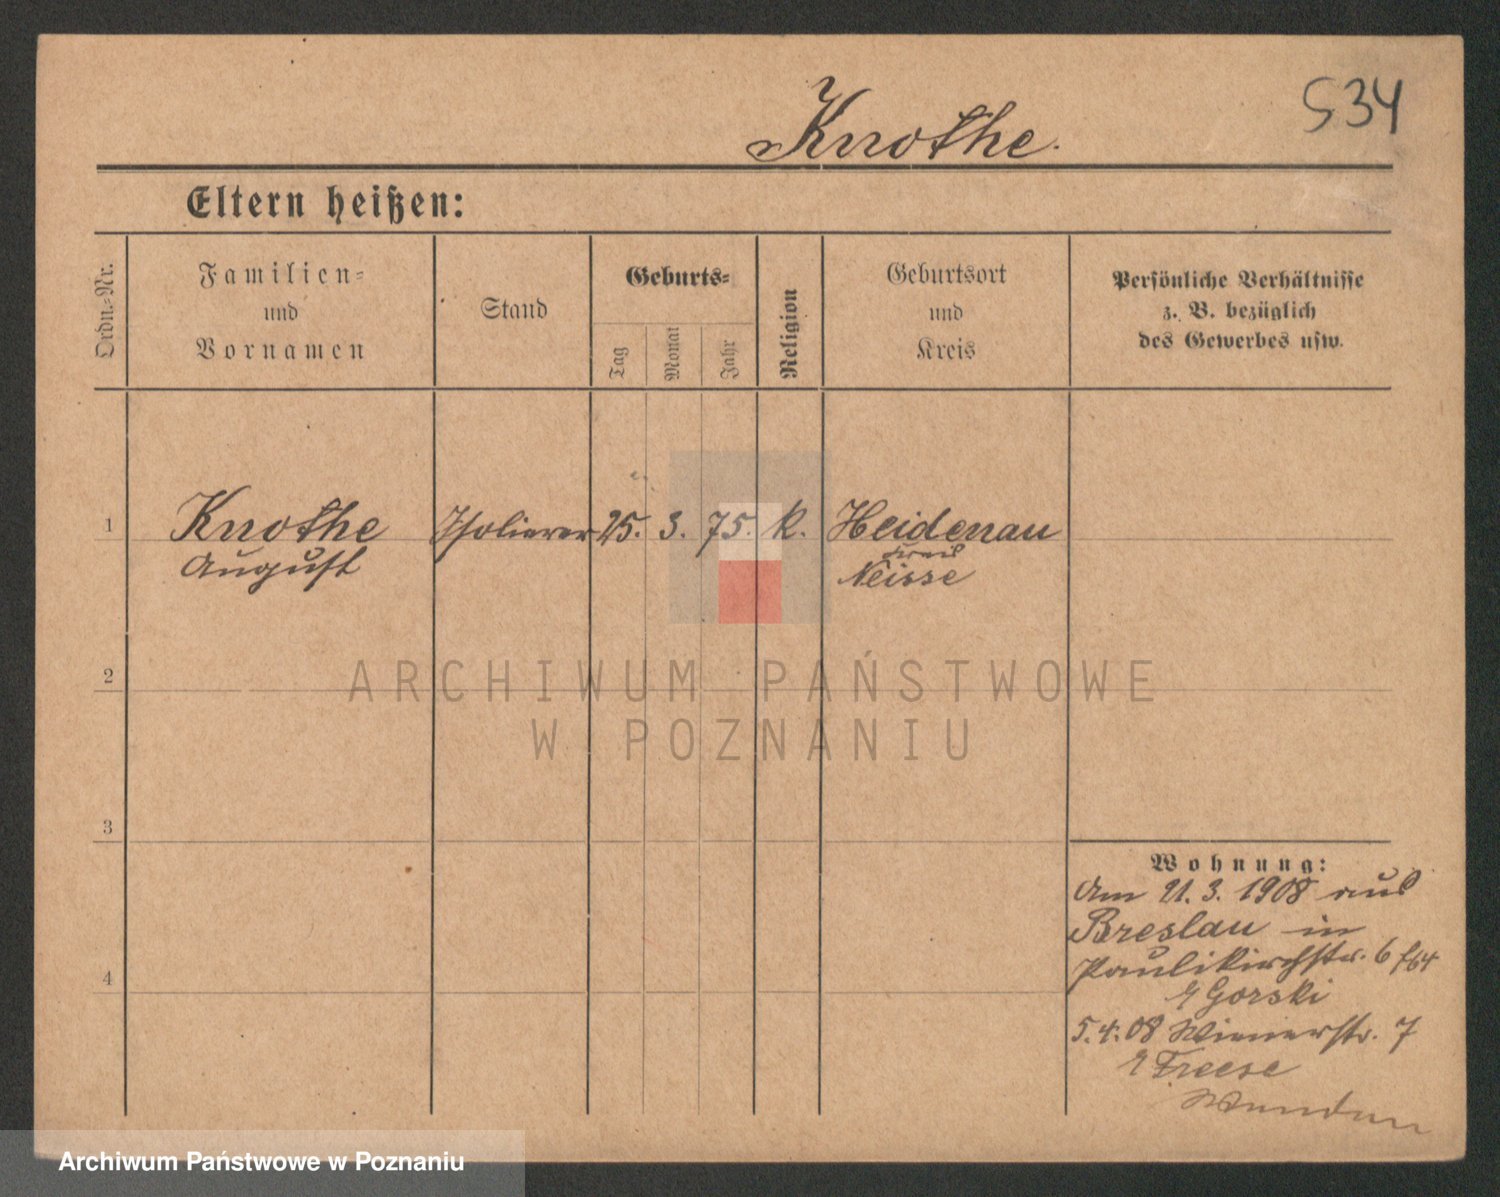 Knothe.
534
Eltern heißen:
Ordn.-Nr.
Familien-
und
Vornamen
Stand
Geburts-
Tag
Monat
Jahr
Religion
Geburtsort
und
Kreis
Persönliche Verhältnisse
z. B. bezüglich
des Gewerbes usw.
1
Knothe
August
Isolierer
25. 3. 75.
k.
Heidenau
Kreis
Neisse
2
3
4
Wohnung:
Am 21.3.1908 aus
Breslau in
Paulikirchstr. 6
Gorski
5.4.08 Wienerstr. 7
Freese
ARCHIWUM PAŃSTWOWE
W POZNANIU
Archiwum Państwowe w Poznaniu